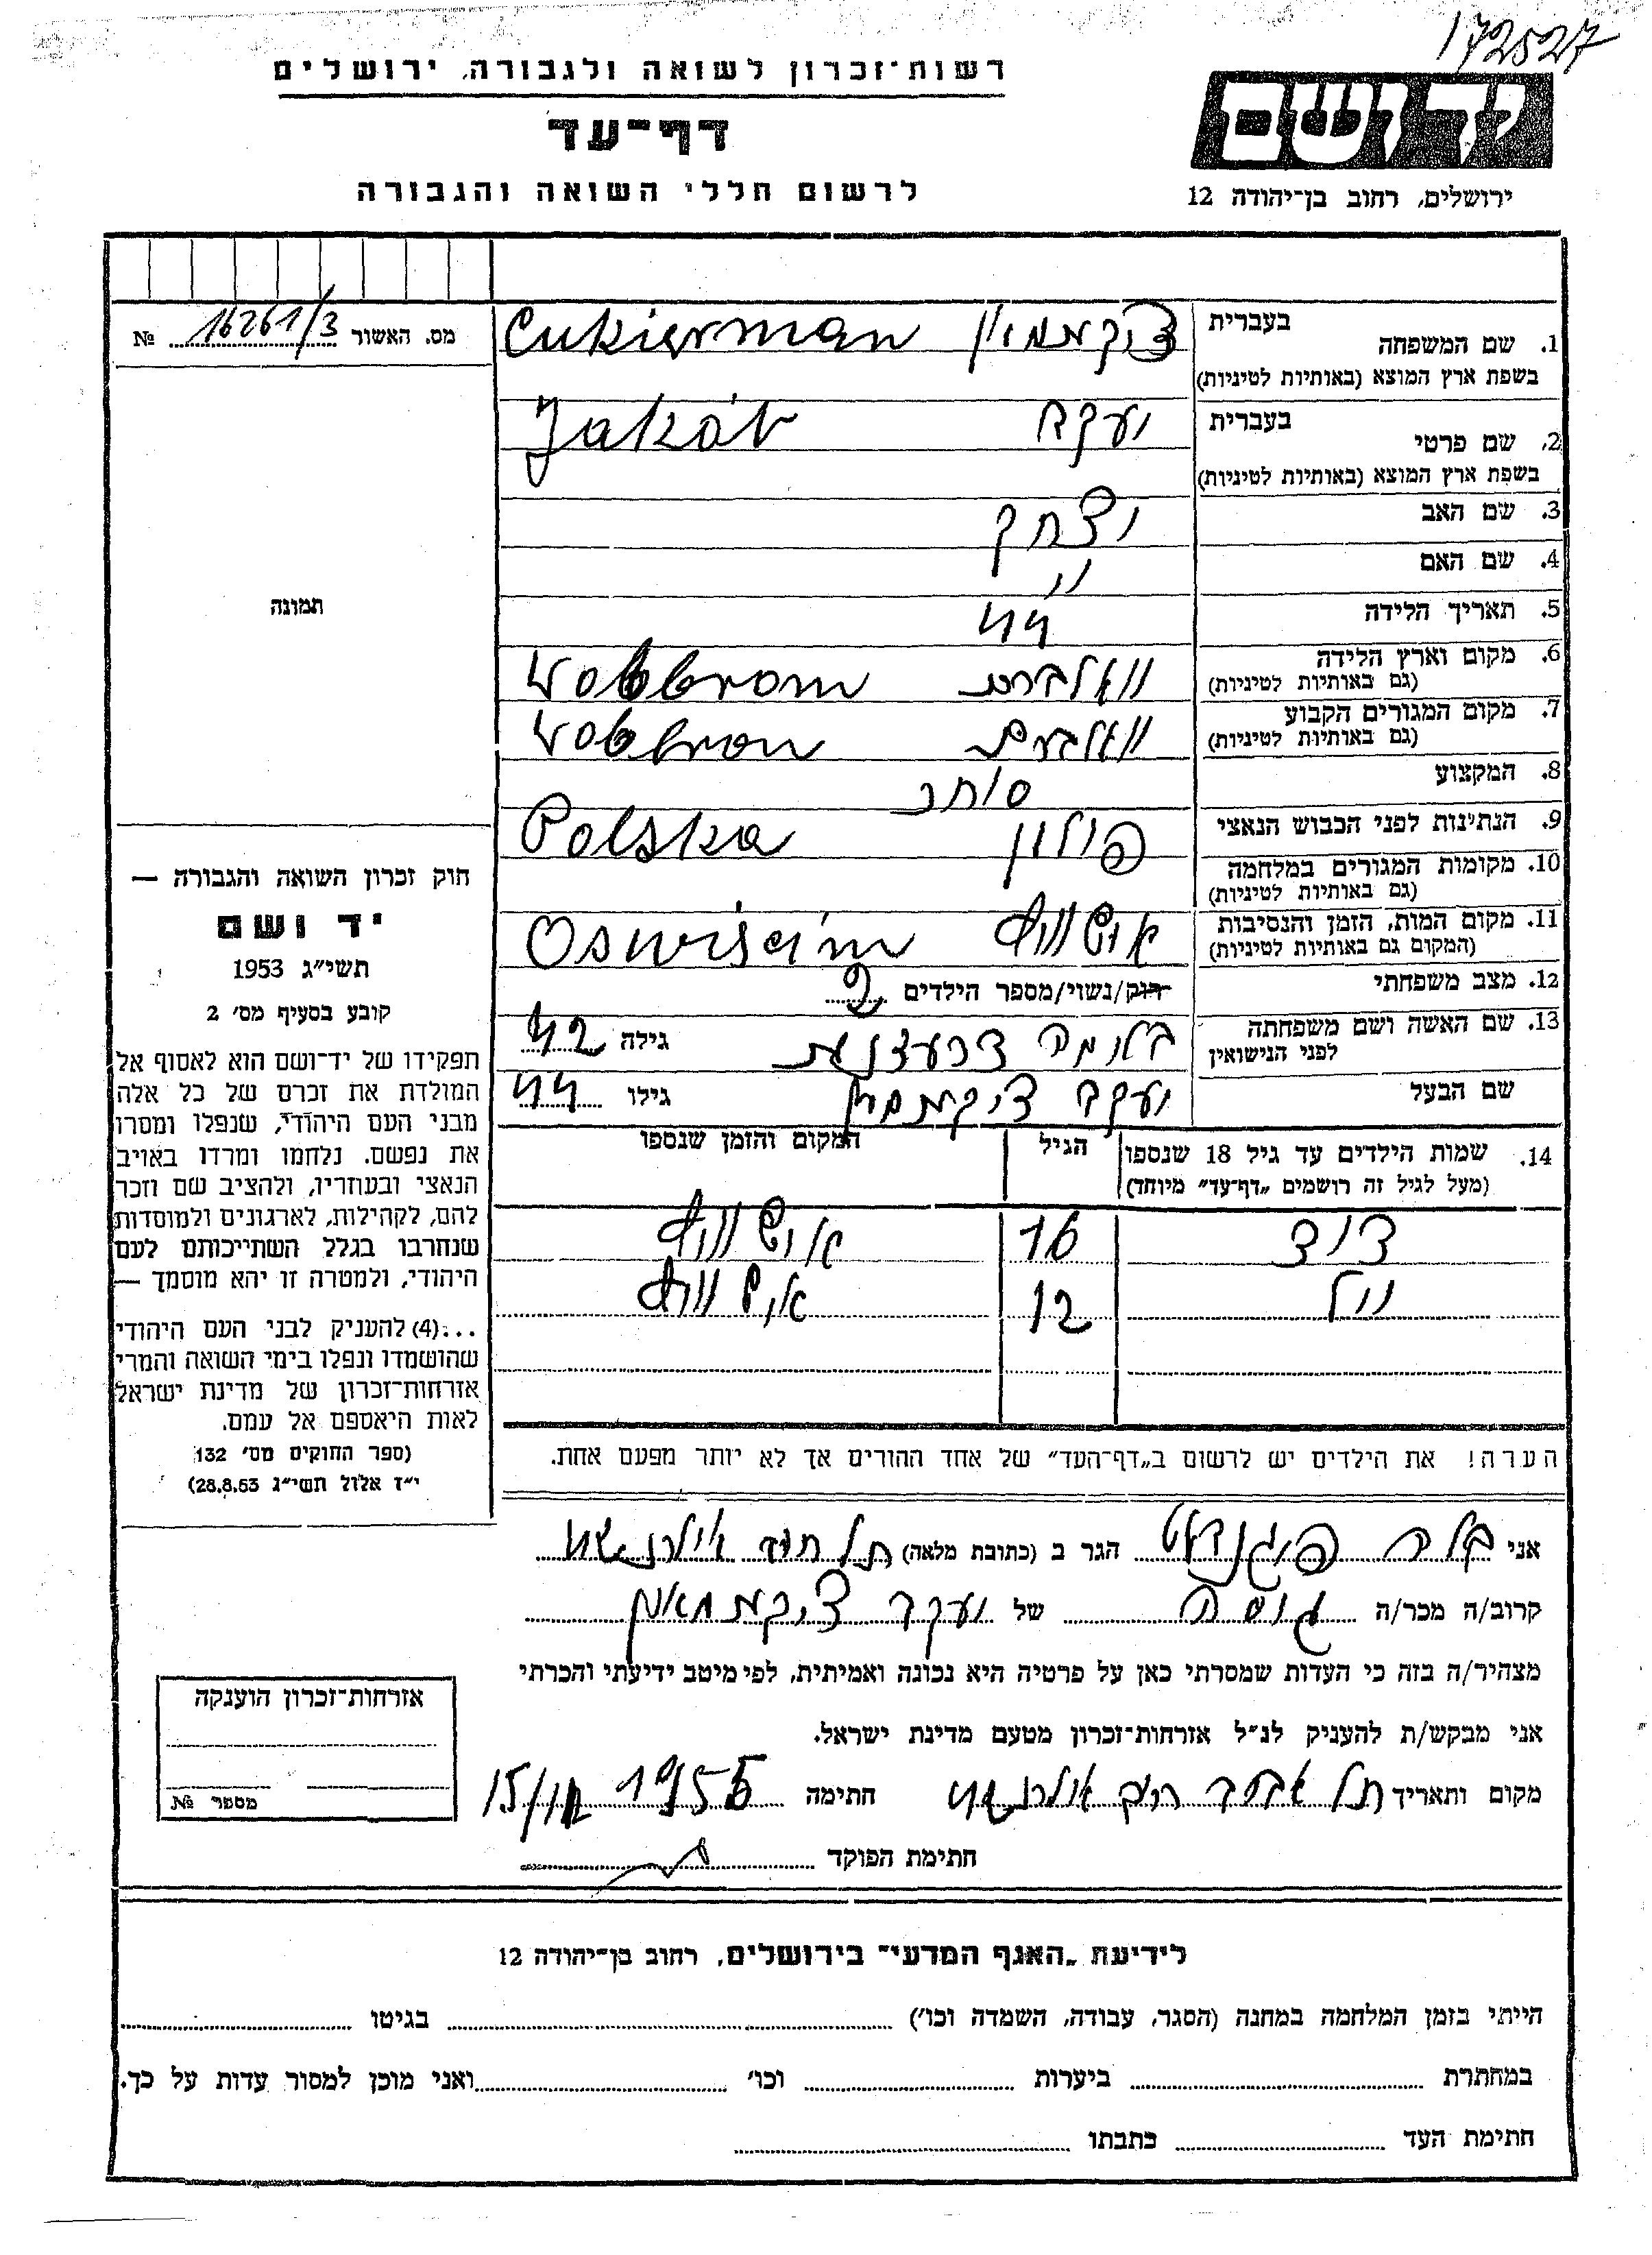 172527
רשות־זכרון לשואה ולגבורה, ירושלים
דף־עד
לרשום חללי השואה והגבורה
יד ושם
ירושלים, רחוב בן־יהודה 12
מס. האשור 16261/3 №
תמונה
1. שם המשפחה
בעברית
בשפת ארץ המוצא (באותיות לטיניות)
Cukierman
2. שם פרטי
בעברית
בשפת ארץ המוצא (באותיות לטיניות)
יעקב Jakób
3. שם האב יצחק
4. שם האם
5. תאריך הלידה 44
6. מקום וארץ הלידה
(גם באותיות לטיניות)
וואלברום Wolbrom
7. מקום המגורים הקבוע
(גם באותיות לטיניות)
וואלברום
8. המקצוע סוחר
9. הנתינות לפני הכבוש הנאצי פולין Polska
10. מקומות המגורים במלחמה
(גם באותיות לטיניות)
11. מקום המות, הזמן והנסיבות
(המקום גם באותיות לטיניות)
Oswiśćim
12. מצב משפחתי רוק/נשוי/מספר הילדים 2
13. שם האשה ושם משפחתה
לפני הנישואין
גילה 42
שם הבעל יעקב גילו 44
14. שמות הילדים עד גיל 18 שנספו
(מעל לגיל זה רושמים „דף־עד" מיוחד)
הגיל
המקום והזמן שנספו
דוד 16
12
הערה! את הילדים יש לרשום ב„דף־העד" של אחד ההורים אך לא יותר מפעם אחת.
חוק זכרון השואה והגבורה —
יד ושם
תשי״ג 1953
קובע בסעיף מס׳ 2
תפקידו של יד־ושם הוא לאסוף אל
המולדת את זכרם של כל אלה
מבני העם היהודי, שנפלו ומסרו
את נפשם, נלחמו ומרדו באויב
הנאצי ובעוזריו, ולהציב שם וזכר
להם, לקהילות, לארגונים ולמוסדות
שנחרבו בגלל השתייכותם לעם
היהודי, ולמטרה זו יהא מוסמך —
...(4) להעניק לבני העם היהודי
שהושמדו ונפלו בימי השואה והמרי
אזרחות־זכרון של מדינת ישראל
לאות היאספם אל עמם.
(ספר החוקים מס׳ 132
י״ז אלול תשי״ג 28.8.53)
אני בלה הגר ב (כתובת מלאה)
קרוב/ה מכר/ה גיסה של יעקב
מצהיר/ה בזה כי העדות שמסרתי כאן על פרטיה היא נכונה ואמיתית, לפי מיטב ידיעתי והכרתי
אני מבקש/ת להעניק לנ״ל אזרחות־זכרון מטעם מדינת ישראל.
מקום ותאריך תל אביב חתימה 1955
חתימת הפוקד
אזרחות־זכרון הוענקה
מספר №
לידיעת „האגף המדעי" בירושלים, רחוב בן־יהודה 12
הייתי בזמן המלחמה במחנה (הסגר, עבודה, השמדה וכו׳) בגיטו
במחתרת ביערות וכו׳ ואני מוכן למסור עדות על כך.
חתימת העד כתבתו